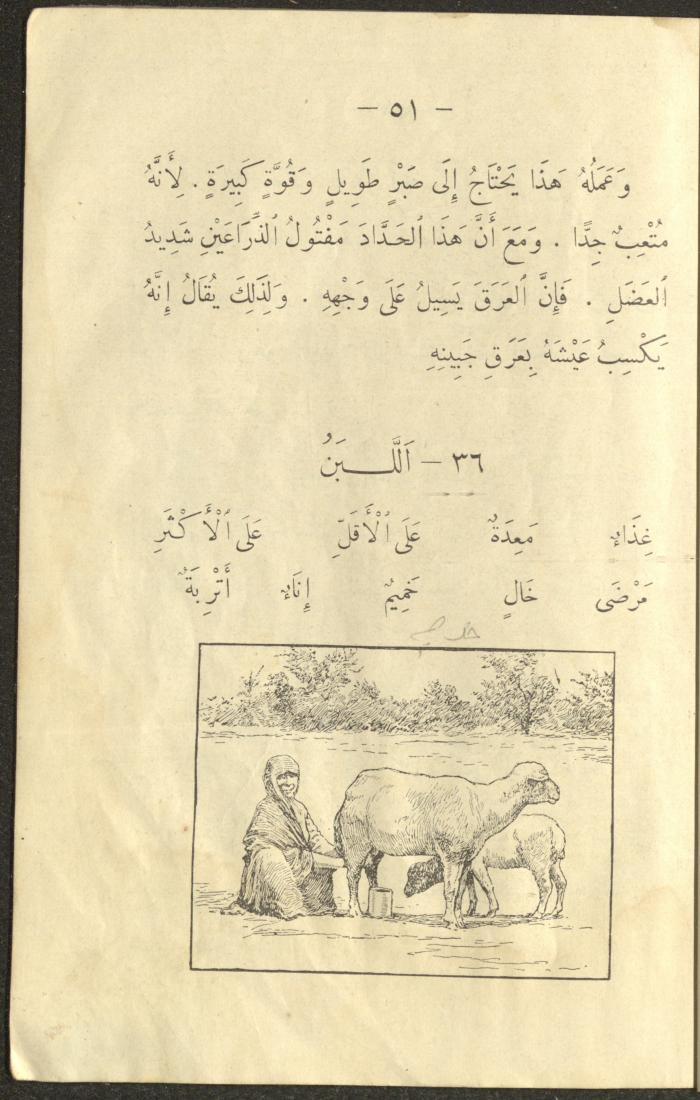 — ٥١ —
وَعَمَلُهُ هَذَا يَحْتَاجُ إِلَى صَبْرٍ طَوِيلٍ وَقُوَّةٍ كَبِيرَةٍ . لِأَنَّهُ
مُتْعِبٌ جِدًّا . وَمَعَ أَنَّ هَذَا ٱلحَدَّادَ مَفْتُولُ ٱلذِّرَاعَيْنِ شَدِيدُ
ٱلعَضَلِ . فَإِنَّ ٱلعَرَقَ يَسِيلُ عَلَى وَجْهِهِ . وَلِذَلِكَ يُقَالُ إِنَّهُ
يَكْسِبُ عَيْشَهُ بِعَرَقِ جَبِينِهِ
٣٦ — اَللَّـــبَنُ
غِذَاءٌ مَعِدَةٌ عَلَى ٱلْأَقَلِّ عَلَى ٱلْأَكْثَرِ
مَرْضَى خَالٍ خَمِيمٌ إِنَاءٌ أَتْرِبَةٌ